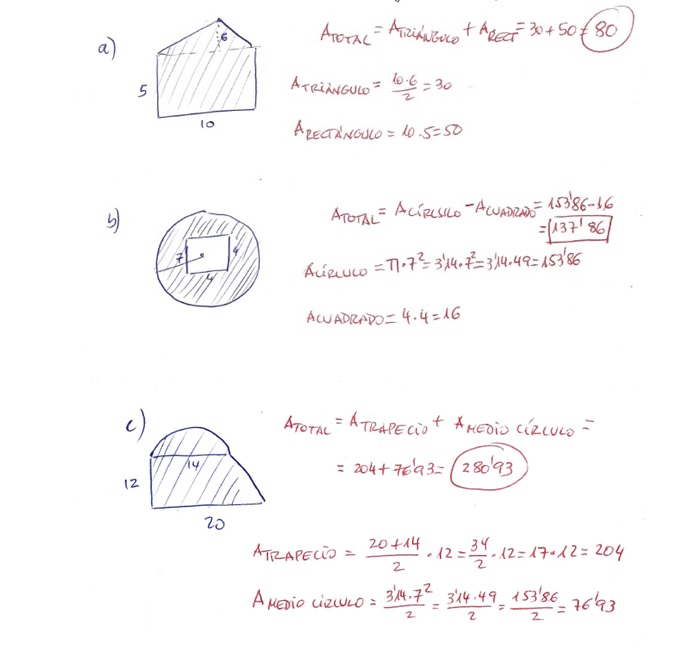 a)
6
5
10
ATOTAL = ATRIÁNGULO + ARECT = 30 + 50 = 80
ATRIÁNGULO = 10·6/2 = 30
ARECTÁNGULO = 10·5 = 50
b)
7
4
4
ATOTAL = ACÍRCULO - ACUADRADO = 153'86 - 16
= 137'86
ACÍRCULO = π·7² = 3'14·7² = 3'14·49 = 153'86
ACUADRADO = 4·4 = 16
c)
14
12
20
ATOTAL = ATRAPECIO + AMEDIO CÍRCULO =
= 204 + 76'93 = 280'93
ATRAPECIO = 20+14/2 · 12 = 34/2 · 12 = 17·12 = 204
AMEDIO CÍRCULO = 3'14·7²/2 = 3'14·49/2 = 153'86/2 = 76'93